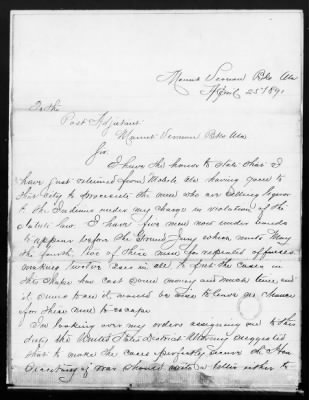 Mount Vernon Bks Ala
April 25th 1891
To the
Post Adjutant
Mount Vernon Bks Ala
Sir
I have the honor to state that I
have just returned from Mobile Ala having gone to
that city to prosecute the men who are selling liquor
to the Indians under my charge in violation of the
Statute law. I have five men now under bonds
to appear before the Grand Jury which meets May
the fourth, five of these men for repeated offences.
making twelve cases in all to get the cases in
this shape has cost some money and much time, and
it seems to me it would be wise to leave no chance
for these men to escape
In looking over my orders assigning me to this
duty the United States District Attorney suggested
that to make the cases perfectly secure the Hon
Secretary of War should write a letter either to